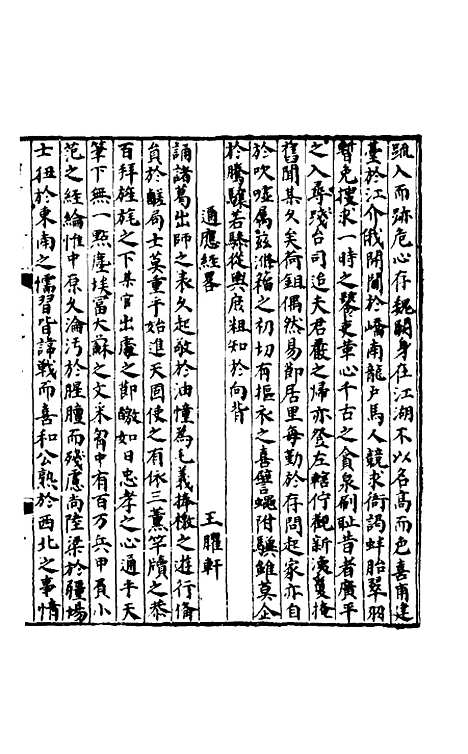 疏入而跡危心存魏闕身在江湖不以名高而色喜甫建
臺於江介俄開閫於嶠南龍戶馬人競求衙謁蚌胎翠羽
暫免搜求一時之饕吏革心千古之貪泉刷恥昔者廣平
之入尋殘台司迨夫君嚴之歸亦登左轄佇觀新渙奠掩
舊聞某久矣荷鉏偶然易節居里每勤於存問起家亦自
於吹噓屬茲滌篆之初切有摳衣之喜譬蠅附驥雖莫企
於騰驤若驂從輿庶粗知於向背
通應經畧　王臞軒
誦諸葛出師之表久起敬於油幢為毛義捧檄之遊行備
員於鹺局士莫重乎始進天固使之有依三薰竿牘之恭
百拜旌旄之下某官出處之節皦如日忠孝之心通乎天
筆下無一點塵埃富大蘇之文米胷中有百萬兵甲負小
范之經綸惟中原久淪汚於腥膻而殘虜尚陸梁於疆場
士狃於東南之懦習皆諱戰而喜和公熟於西北之事情